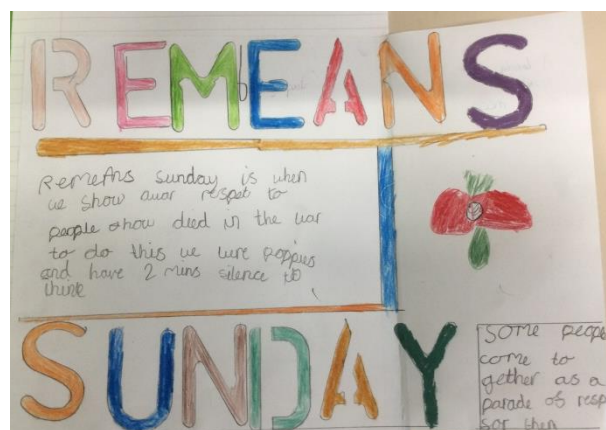 REMEANS
Remeans sunday is when
we show auar respet to
people show died in the war
to do this we wure poppies
and have 2 mins silence to
think
SUNDAY
SOME people
come to
gether as a
parade of resp
for then